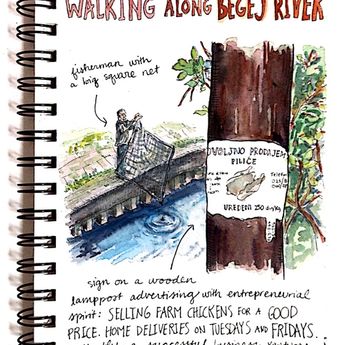 WALKING ALONG BEGEJ RIVER
fisherman with
a big square net
POVOLJNO PRODAJEM
PILIĆE
sign on a wooden
lamppost advertising with entrepreneurial
spirit: SELLING FARM CHICKENS FOR A GOOD
PRICE. HOME DELIVERIES ON TUESDAYS AND FRIDAYS.